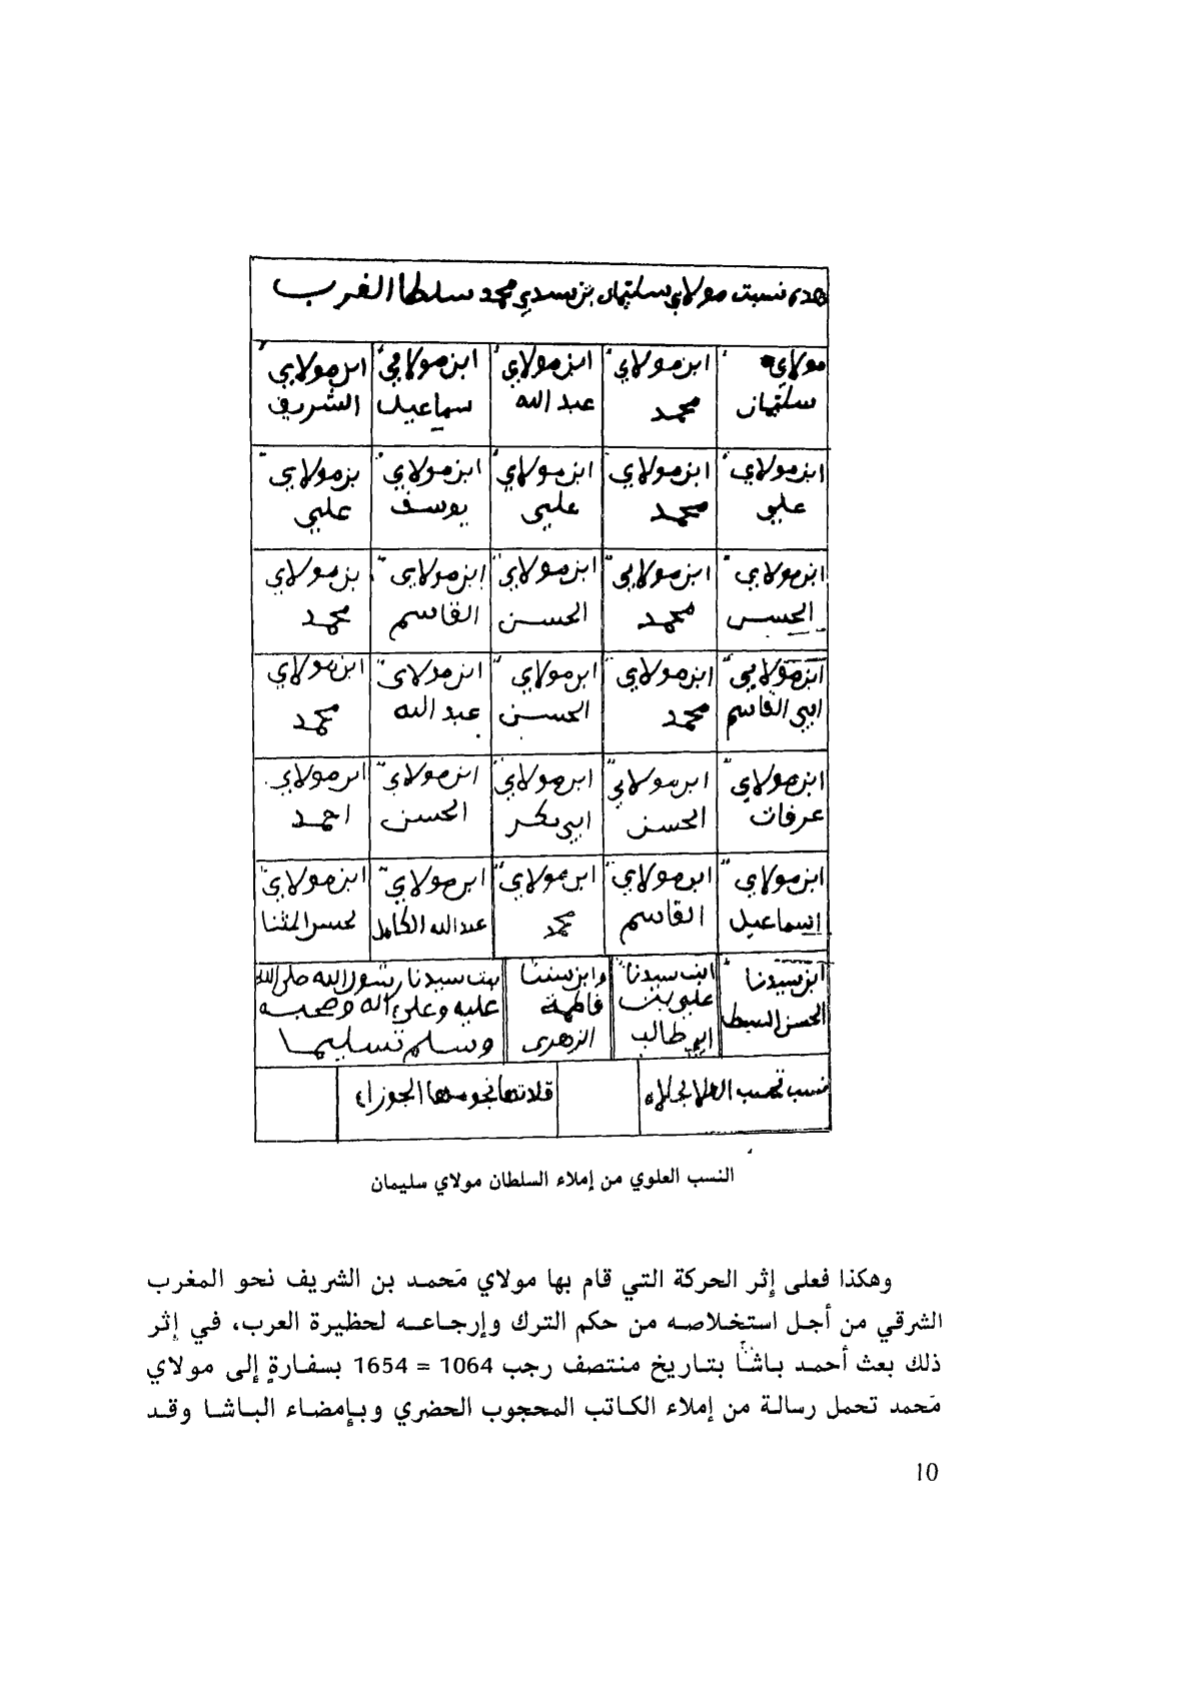 هده نسبت مولاي سليمان بن سيدي محمد سلطا الغرب
مولاي سليمان ابن مولاي محمد ابن مولاي عبد الله ابن مولاي سماعيل ابن مولاي الشريف
ابن مولاي علي ابن مولاي محمد ابن مولاي علي ابن مولاي يوسف بن مولاي علي
ابن مولاي الحسن ابن مولاي محمد ابن مولاي الحسن ابن مولاي القاسم بن مولاي محمد
ابن مولاي ابي القاسم ابن مولاي محمد ابن مولاي الحسن ابن مولاي عبد الله ابن مولاي محمد
ابن مولاي عرفات ابن مولاي الحسن ابن مولاي ابي بكر ابن مولاي الحسن ابن مولاي احمد
ابن مولاي اسماعيل ابن مولاي القاسم ابن مولاي محمد ابن مولاي عبد الله الكامل ابن مولاي لحسن المثنا
ابن سيدنا الحسن السبط ابن سيدنا علي بن ابي طالب وابن سيدتنا فاطمة الزهرى بنت سيدنا رسول الله صلى الله عليه وعلى آله وصحبه وسلم تسليما
نسب تحسب العلا بحلاه قلادتها نجومها الجوزاء
النسب العلوي من إملاء السلطان مولاي سليمان
وهكذا فعلى إثر الحركة التي قام بها مولاي مَحمد بن الشريف نحو المغرب
الشرقي من أجل استخلاصه من حكم الترك وإرجاعه لحظيرة العرب، في إثر
ذلك بعث أحمد باشا بتاريخ منتصف رجب 1064 = 1654 بسفارة إلى مولاي
مَحمد تحمل رسالة من إملاء الكاتب المحجوب الحضري وبإمضاء الباشا وقد
10